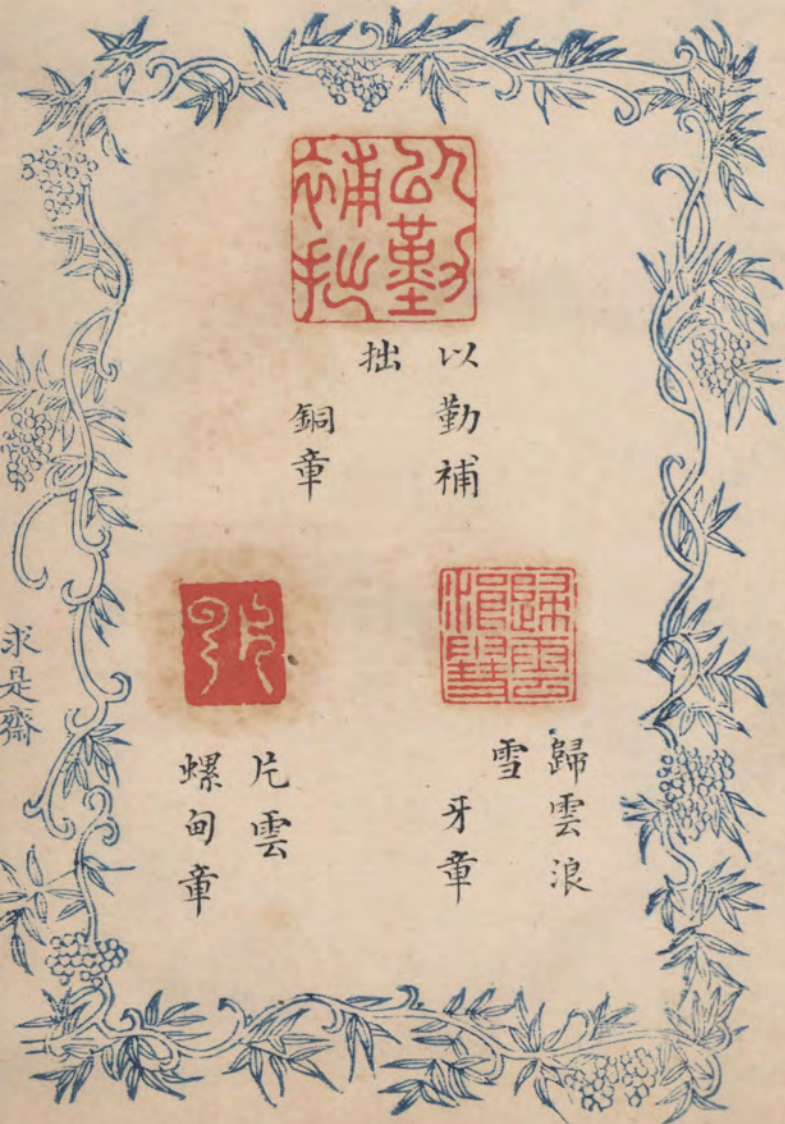 以勤補拙
以勤補
拙
銅章
歸雲浪雪
歸雲浪
雪
牙章
片雲
片雲
螺甸章
求是齋